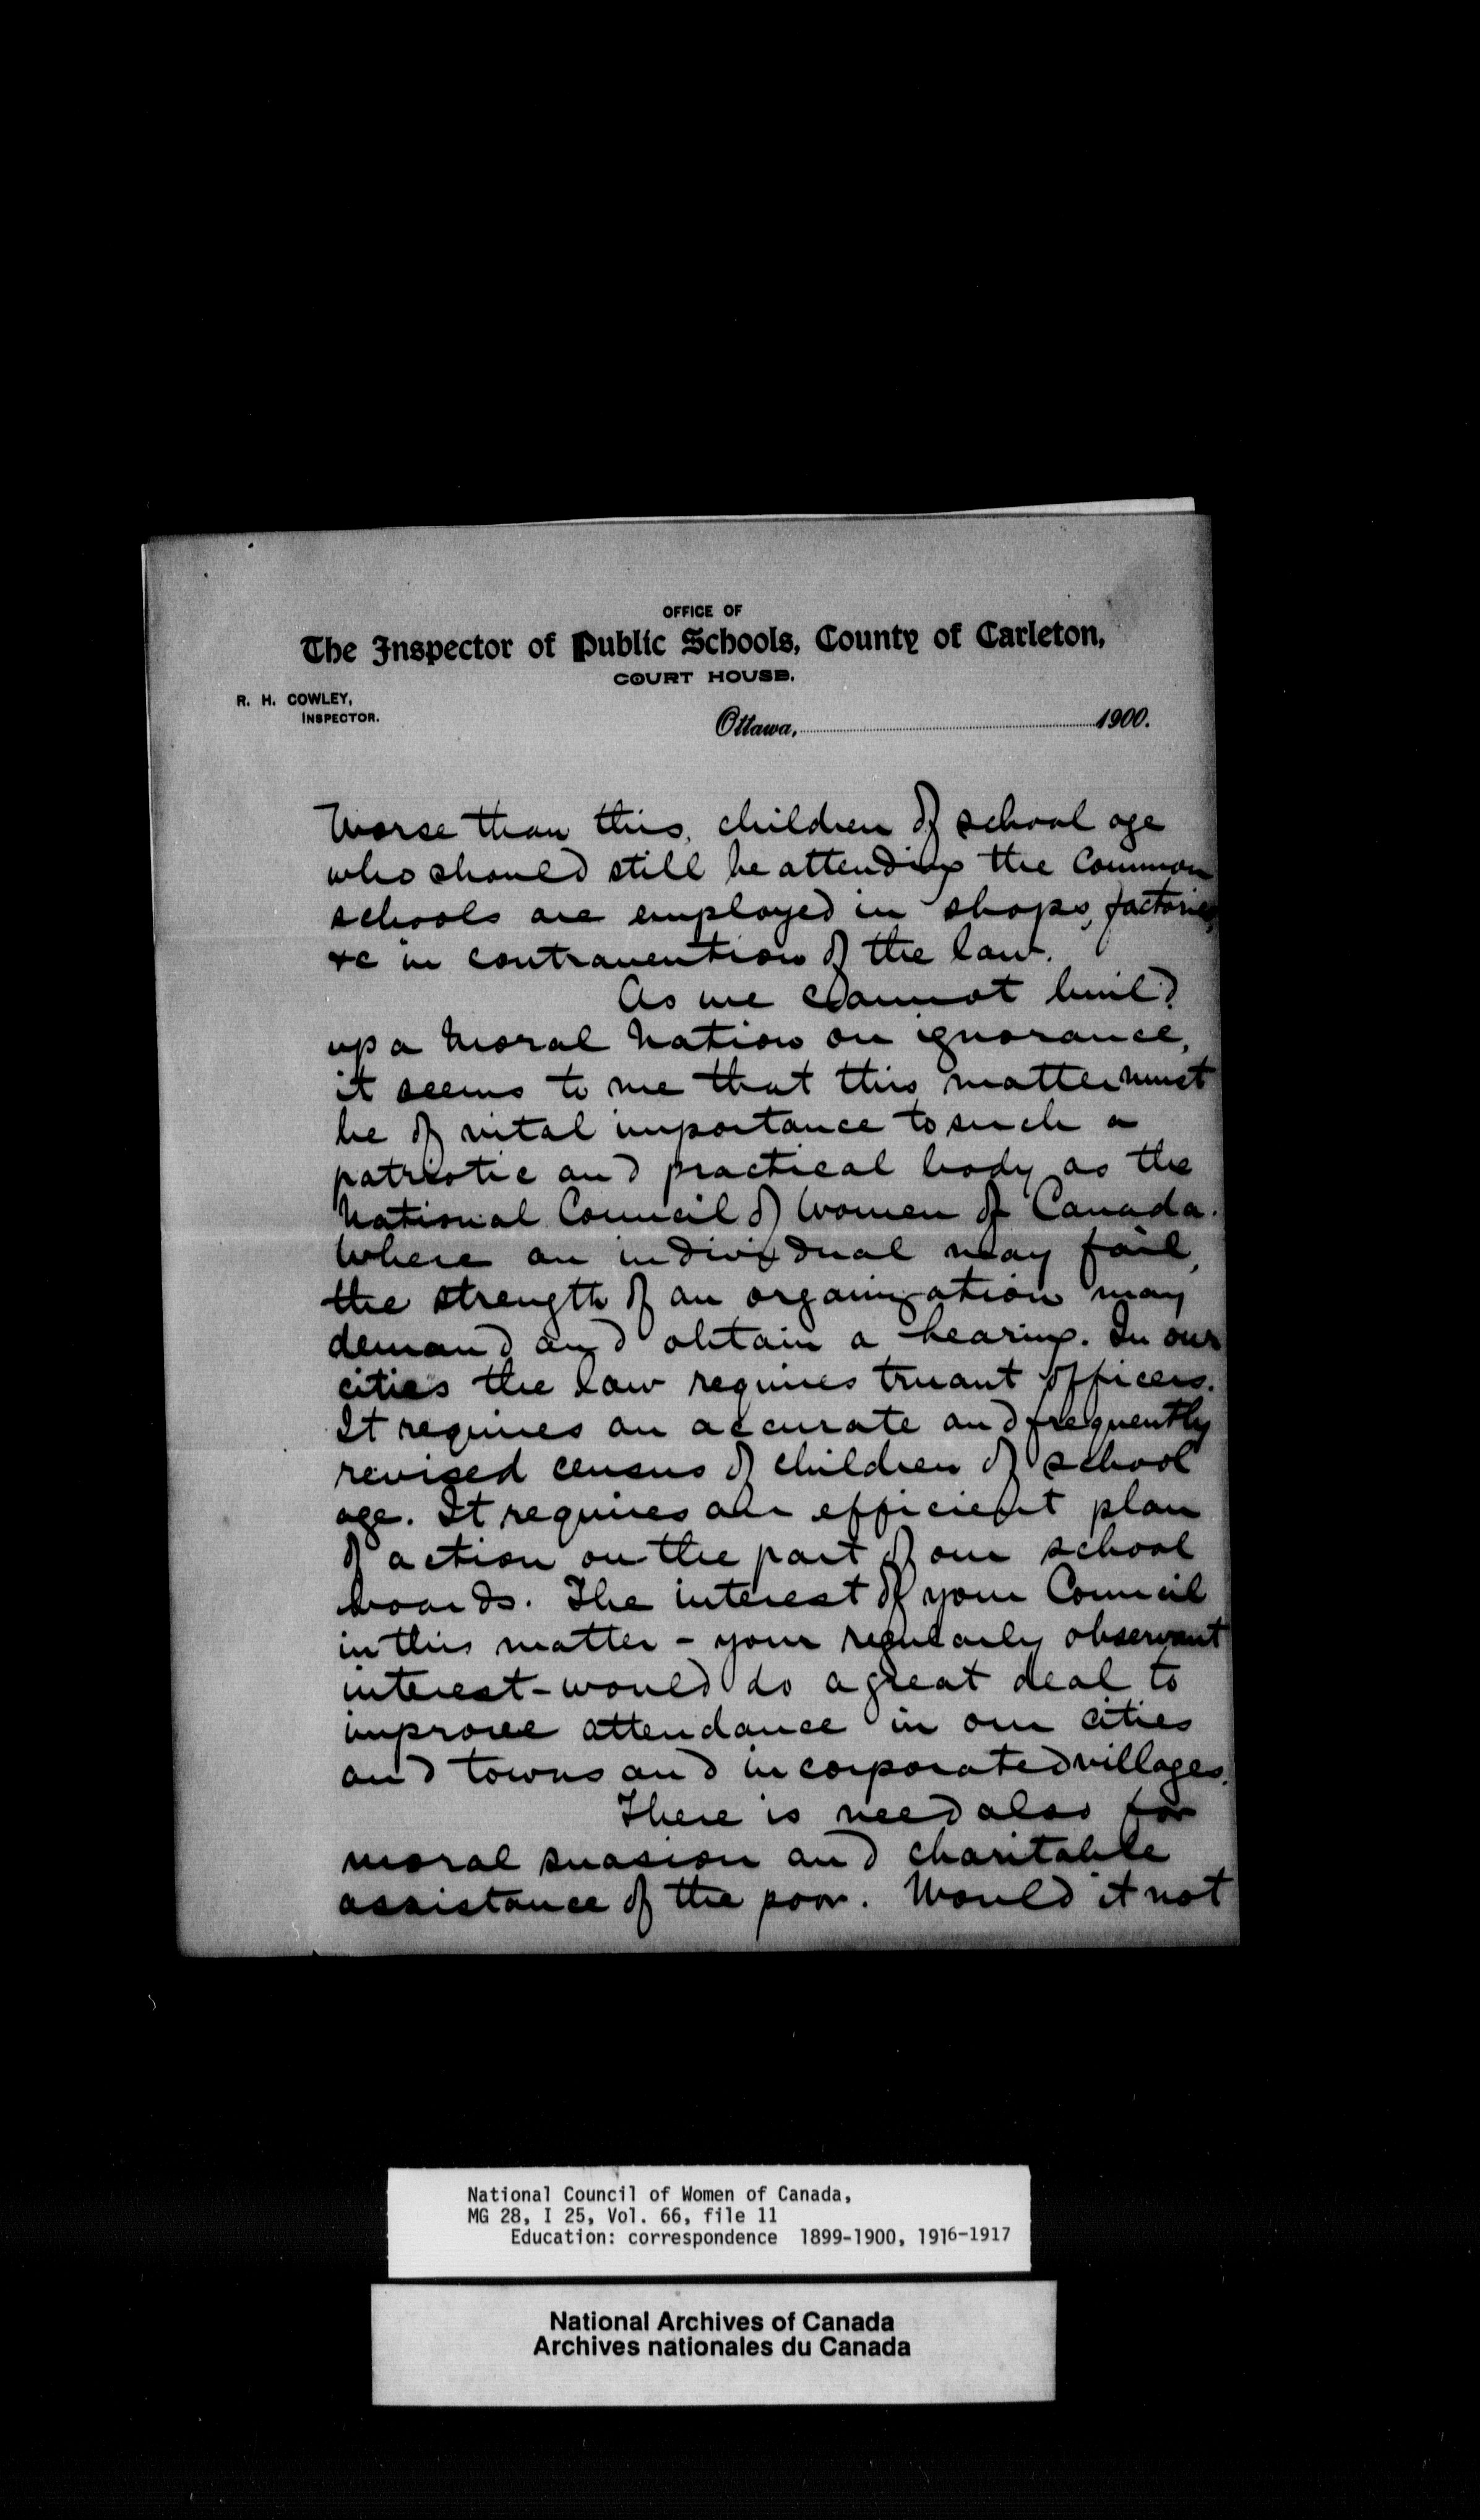 OFFICE OF
The Inspector of Public Schools, County of Carleton,
COURT HOUSE.
R. H. COWLEY,
INSPECTOR.
Ottawa, 1900.
Worse than this, children of school age
who should still be attending the common
schools are employed in shops, factories,
&c in contravention of the law.
As we cannot build
up a moral nation on ignorance,
it seems to me that this matter must
be of vital importance to such a
patriotic and practical body as the
National Council of Women of Canada.
Where an individual may fail,
the strength of an organization may
demand and obtain a hearing. In our
cities the law requires truant officers.
It requires an accurate and frequently
revised census of children of school
age. It requires an efficient plan
of action on the part of our school
boards. The interest of your Council
in this matter - your regularly observant
interest - would do a great deal to
improve attendance in our cities
and towns and incorporated villages.
There is need also for
moral suasion and charitable
assistance of the poor. Would it not
National Council of Women of Canada,
MG 28, I 25, Vol. 66, file 11
Education: correspondence 1899-1900, 1916-1917
National Archives of Canada
Archives nationales du Canada